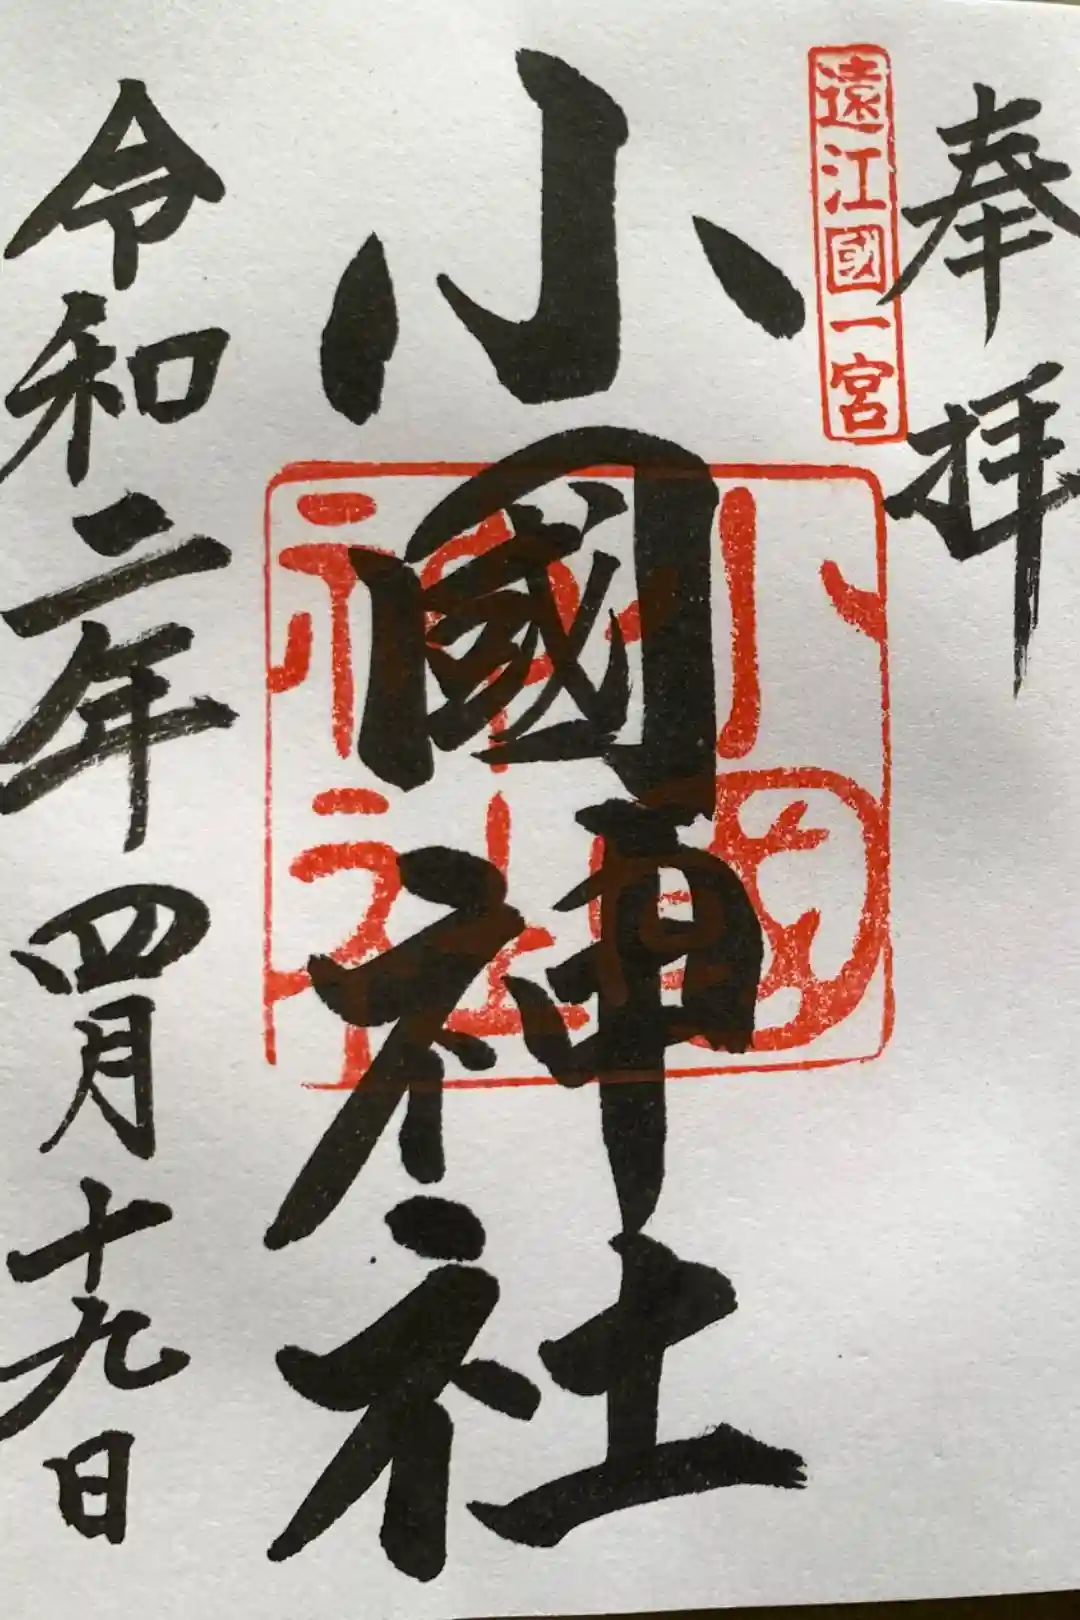 奉拝
遠江國一宮
小國神社
小國神社
令和二年四月十九日